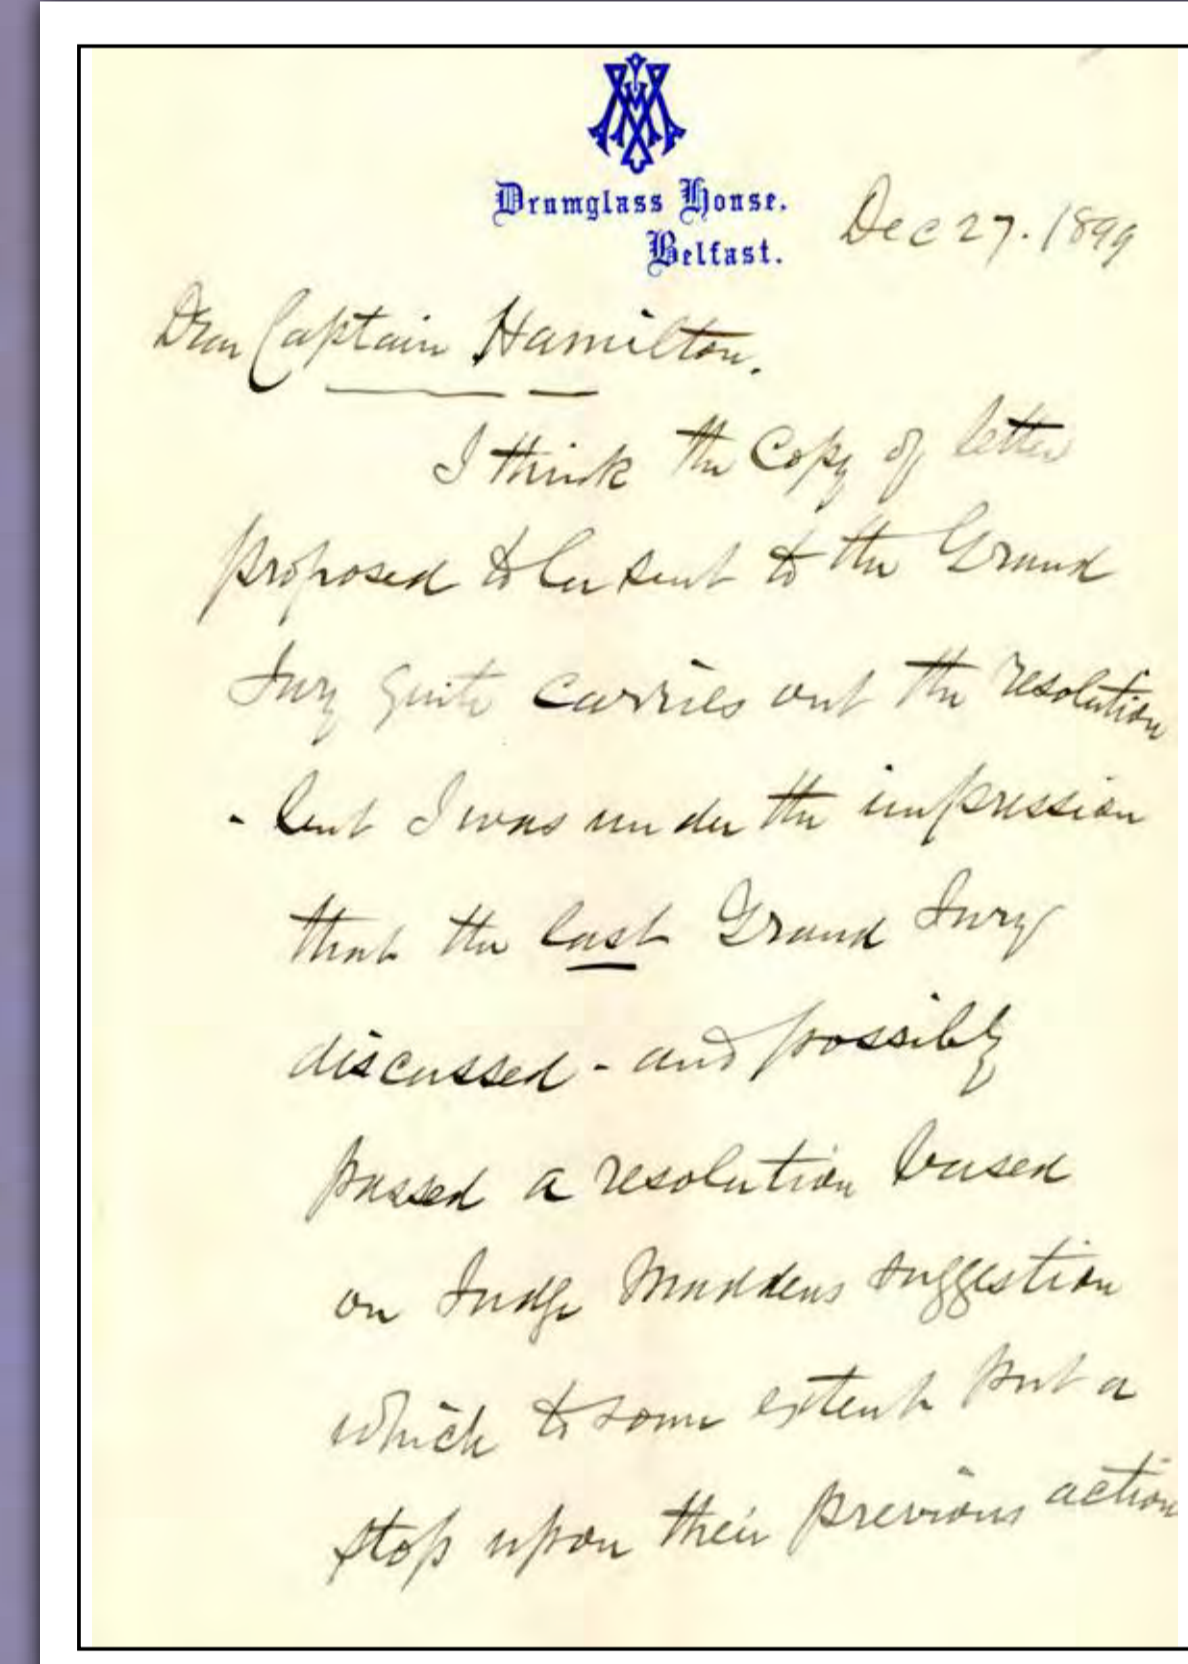 Drumglass House.
Belfast.
Dec 27. 1899
Dear Captain Hamilton.
I think the Copy of letter
proposed to be sent to the Grand
Jury quite carries out the resolution
- but I was under the impression
that the last Grand Jury
discussed - and possibly
passed a resolution based
on Judge Maddens suggestion
which to some extent put a
stop upon their previous action